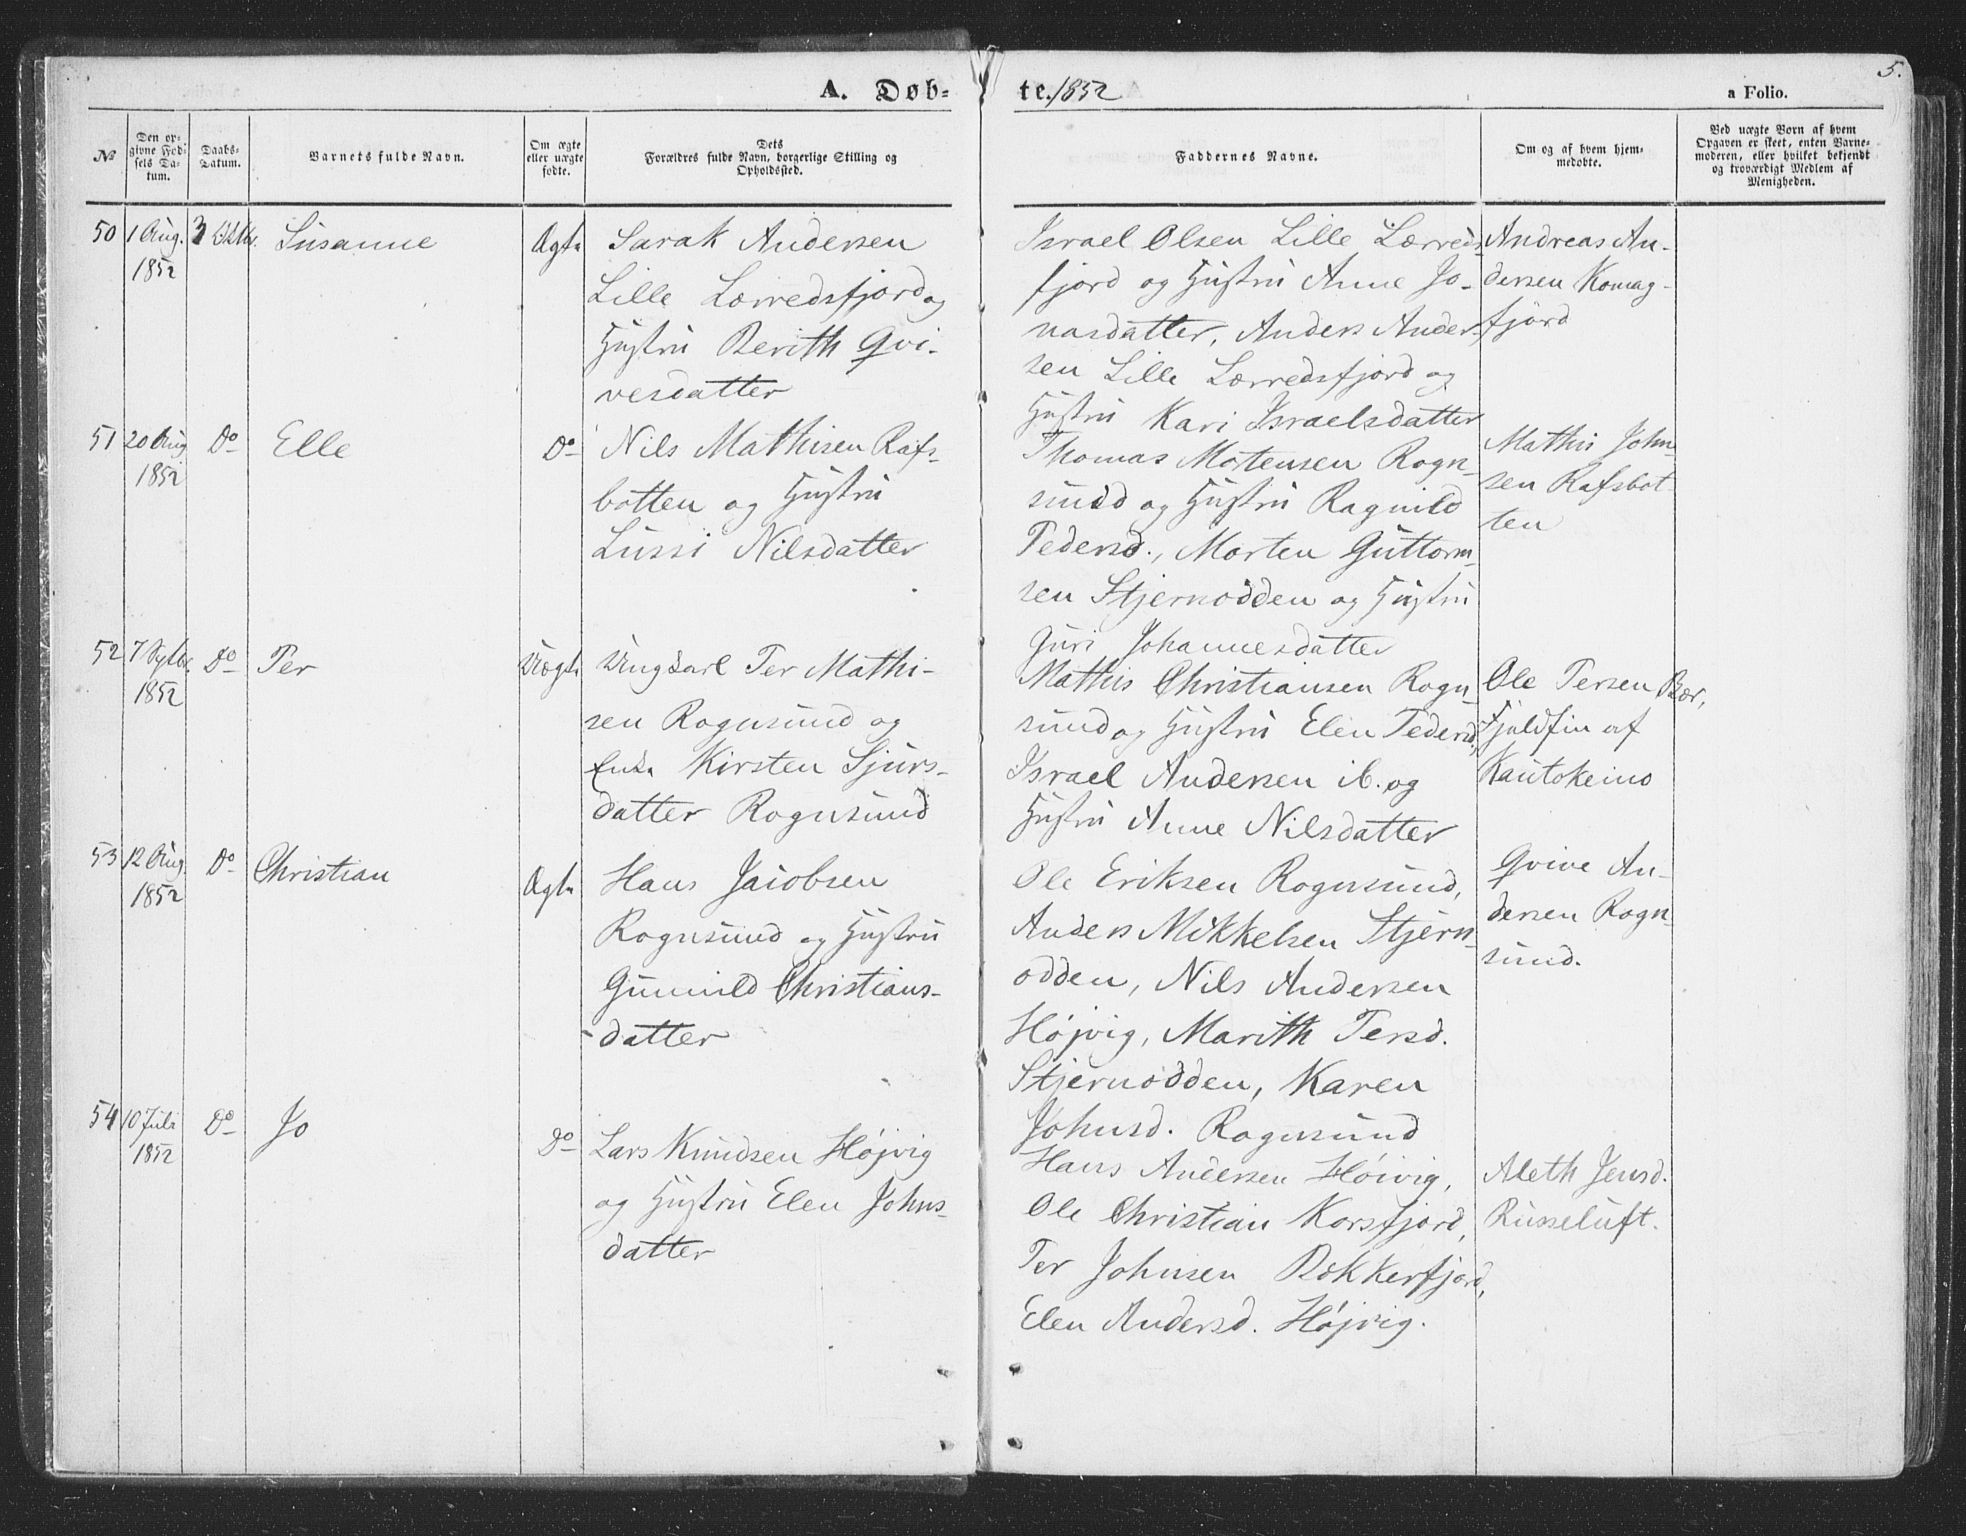 5.
A. Døb-
te. 1852
a Folio.
№
Den op-
givne Fød-
sels Da-
tum.
Daabs-
Datum.
Barnets fulde Navn.
Om ægte
eller uægte
fødte.
Dets
Forældres fulde Navn, borgerlige Stilling og
Opholdssted.
Faddernes Navne.
Om og af hvem hjem-
medøbte.
Ved uægte Børn af hvem
Opgaven er skeet, enten Barne-
moderen, eller hvilket bekjendt
og troværdigt Medlem af
Menigheden.
50
1 Aug.
1852
3 Oktbr.
Susanne
Ægte
Sarak Andersen
Lille Lærredsfjord og
Hustru Berith Qvi-
vesdatter
Israel Olsen Lille Lærreds-
fjord og Hustru Anne Jo-
nasdatter, Anders Ander-
sen Lille Lærredsfjord og
Hustru Kari Israelsdatter
Andreas An-
dersen Komag-
fjord
51
20 Aug.
1852
Do
Elle
Do
Nils Mathisen Rafs-
botten og Hustru
Lussi Nilsdatter
Thomas Mortensen Rogn-
sund og Hustru Ragnild
Pedersd., Morten Guttorm-
sen Stjernodden og Hustru
Guri Johannesdatter
Mathis John-
sen Rafsbot-
ten
52
7 Septbr.
1852
Do
Per
Uægte
Ungkarl Per Mathi-
sen Rognsund og
Enke Kirsten Sjurs-
datter Rognsund
Mathis Christiansen Rogn-
sund og Hustru Elen Pedersd.,
Israel Andersen ib. og
Hustru Anne Nilsdatter
Ole Persen Bær,
Fjeldfin af
Kautokeino
53
12 Aug.
1852
Do
Christian
Ægte
Hans Jacobsen
Rognsund og Hustru
Gunnild Christians-
datter
Ole Eriksen Rognsund,
Anders Mikkelsen Stjern-
odden, Nils Andersen
Højvig, Marith Persd.
Stjernodden, Karen
Johnsd. Rognsund
Qvive An-
dersen Rogn-
sund.
54
10 Juli
1852
Do
Jo
Do
Lars Knudsen Højvig
og Hustru Elen Johns-
datter
Hans Andersen Höivig,
Ole Christian Korsfjord,
Per Johnsen Rækkerfjord,
Elen Andersd. Højvig.
Aleth Jensd.
Russeluft.